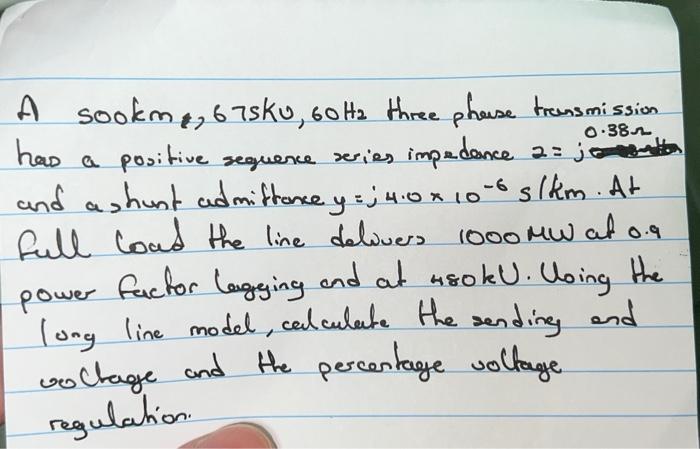 A 500km, 675kV, 60Hz three phase transmission
0.38Ω
has a positive sequence series impedance z = j
and a shunt admittance y = j 4.0 × 10⁻⁶ s/km. At
full load the line delivers 1000 MW at 0.9
power factor lagging and at 480kV. Using the
long line model, calculate the sending end
voltage and the percentage voltage
regulation.